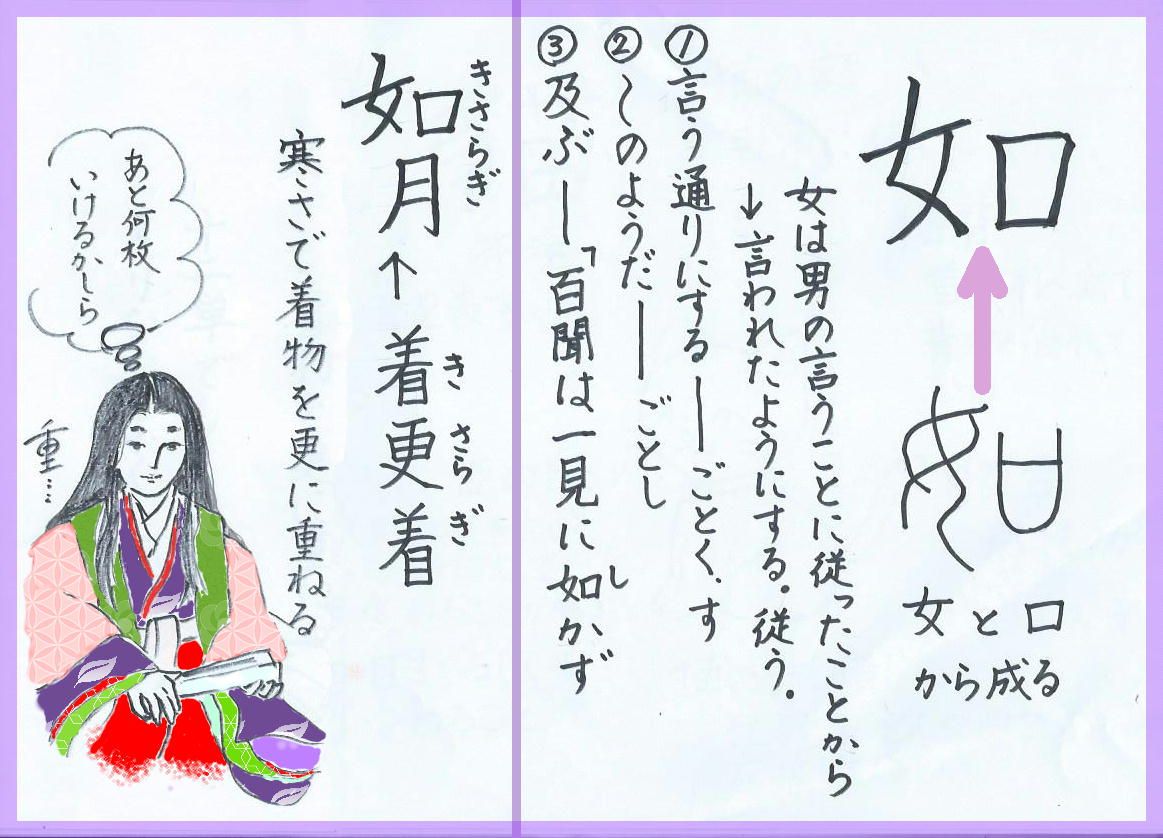 如
女と口
から成る
女は男の言うことに従ったことから
↓言われたようにする。従う。
①言う通りにする──ごとく.す
②〜のようだ──ごとし
③及ぶ──「百聞は一見に如かず
し
如月←着更着
きさらぎ
きさらぎ
寒さで着物を更に重ねる
あと何枚
いけるかしら
重…